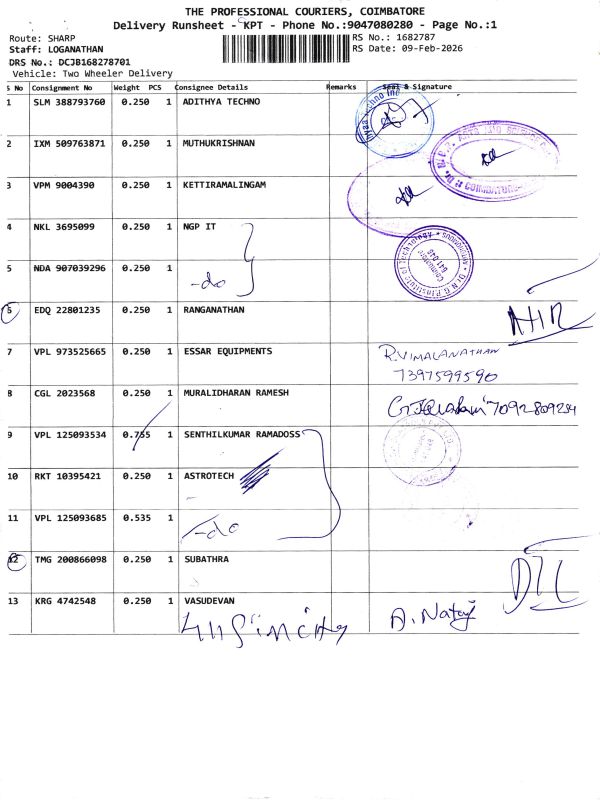 THE PROFESSIONAL COURIERS, COIMBATORE
Delivery Runsheet - KPT - Phone No.:9047080280 - Page No.:1
Route: SHARP
RS No.: 1682787
Staff: LOGANATHAN
RS Date: 09-Feb-2026
DRS No.: DCJB168278701
Vehicle: Two Wheeler Delivery
S No Consignment No Weight PCS Consignee Details Remarks Seal & Signature
1 SLM 388793760 0.250 1 ADITHYA TECHNO
2 IXM 509763871 0.250 1 MUTHUKRISHNAN
3 VPM 9004390 0.250 1 KETTIRAMALINGAM
4 NKL 3695099 0.250 1 NGP IT
5 NDA 907039296 0.250 1 -do
Dr. N.G.P. Institute of Technology
Coimbatore
641 048
6 EDQ 22801235 0.250 1 RANGANATHAN
7 VPL 973525665 0.250 1 ESSAR EQUIPMENTS R.VIMALANATHAN
7397599590
8 CGL 2023568 0.250 1 MURALIDHARAN RAMESH
9 VPL 125093534 0.755 1 SENTHILKUMAR RAMADOSS
10 RKT 10395421 0.250 1 ASTROTECH
11 VPL 125093685 0.535 1 -do
12 TMG 200866098 0.250 1 SUBATHRA
13 KRG 4742548 0.250 1 VASUDEVAN